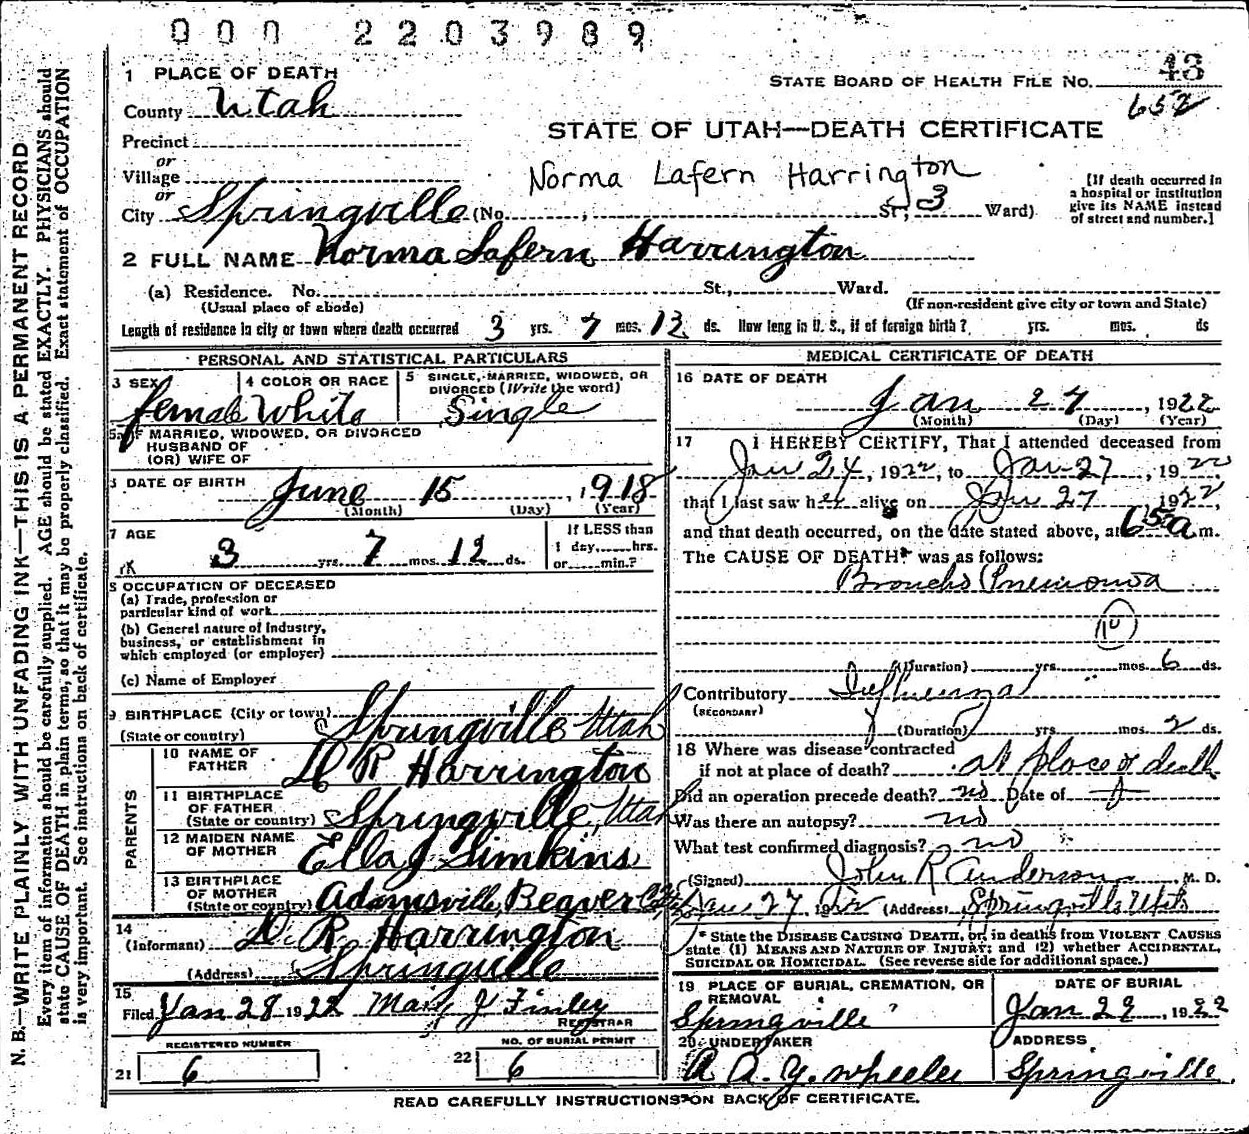 000 2203989
1 PLACE OF DEATH
STATE BOARD OF HEALTH FILE NO. 43
County Utah
652
STATE OF UTAH—DEATH CERTIFICATE
Precinct
or
Village
Norma Lafern Harrington
[If death occurred in a hospital or institution give its NAME instead of street and number.]
or
City Springville (No. , St; 3 Ward)
2 FULL NAME Norma Lafern Harrington
(a) Residence. No. St., Ward.
(Usual place of abode) (If non-resident give city or town and State)
Length of residence in city or town where death occurred 3 yrs. 7 mos. 12 ds. How long in U. S., if of foreign birth? yrs. mos. ds
PERSONAL AND STATISTICAL PARTICULARS
3 SEX 4 COLOR OR RACE 5 SINGLE, MARRIED, WIDOWED, OR DIVORCED (Write the word)
female White Single
5a IF MARRIED, WIDOWED, OR DIVORCED
HUSBAND OF
(OR) WIFE OF
DATE OF BIRTH
June 15, 1918
(Month) (Day) (Year)
7 AGE If LESS than
1 day, hrs.
3 yrs. 7 mos. 12 ds. or min.?
8 OCCUPATION OF DECEASED
(a) Trade, profession or
particular kind of work
(b) General nature of Industry,
business, or establishment in
which employed (or employer)
(c) Name of Employer
9 BIRTHPLACE (City or town)
(State or country) Springville Utah
PARENTS
10 NAME OF
FATHER R Harrington
11 BIRTHPLACE
OF FATHER
(State or country) Springville, Utah
12 MAIDEN NAME
OF MOTHER Ella J Simkins
13 BIRTHPLACE
OF MOTHER
(State or country) Adamsville, Beaver Co
14
(Informant) D. R. Harrington
(Address) Springville
15
Filed Jan 28 1922 Mary J Finley
REGISTRAR
REGISTERED NUMBER NO. OF BURIAL PERMIT
21 6 22 6
MEDICAL CERTIFICATE OF DEATH
16 DATE OF DEATH
Jan 27, 1922
(Month) (Day) (Year)
17 I HEREBY CERTIFY, That I attended deceased from
Jan 24, 1922, to Jan 27, 1922
that I last saw her alive on Jan 27 1922
and that death occurred, on the date stated above, at 6 50 a m.
The CAUSE OF DEATH* was as follows:
Broncho Pneumonia
(Duration) yrs. mos. 6 ds.
Contributory Influenza
(SECONDARY)
(Duration) yrs. mos. 2 ds.
18 Where was disease contracted
if not at place of death? at place of death
Did an operation precede death? no Date of
Was there an autopsy? no
What test confirmed diagnosis? no
(Signed) John R Anderson M. D.
Jan 27 1922 (Address) Springville Utah
* State the DISEASE CAUSING DEATH, or, in deaths from VIOLENT CAUSES
state (1) MEANS AND NATURE OF INJURY; and (2) whether ACCIDENTAL,
SUICIDAL OR HOMICIDAL. (See reverse side for additional space.)
19 PLACE OF BURIAL, CREMATION, OR REMOVAL DATE OF BURIAL
Springville Jan 29, 1922
20 UNDERTAKER ADDRESS
A. Y. Wheeler Springville
READ CAREFULLY INSTRUCTIONS ON BACK OF CERTIFICATE.
N. B.—WRITE PLAINLY WITH UNFADING INK—THIS IS A PERMANENT RECORD
Every item of information should be carefully supplied. AGE should be stated EXACTLY. PHYSICIANS should
state CAUSE OF DEATH in plain terms, so that it may be properly classified. Exact statement of OCCUPATION
is very important. See instructions on back of certificate.